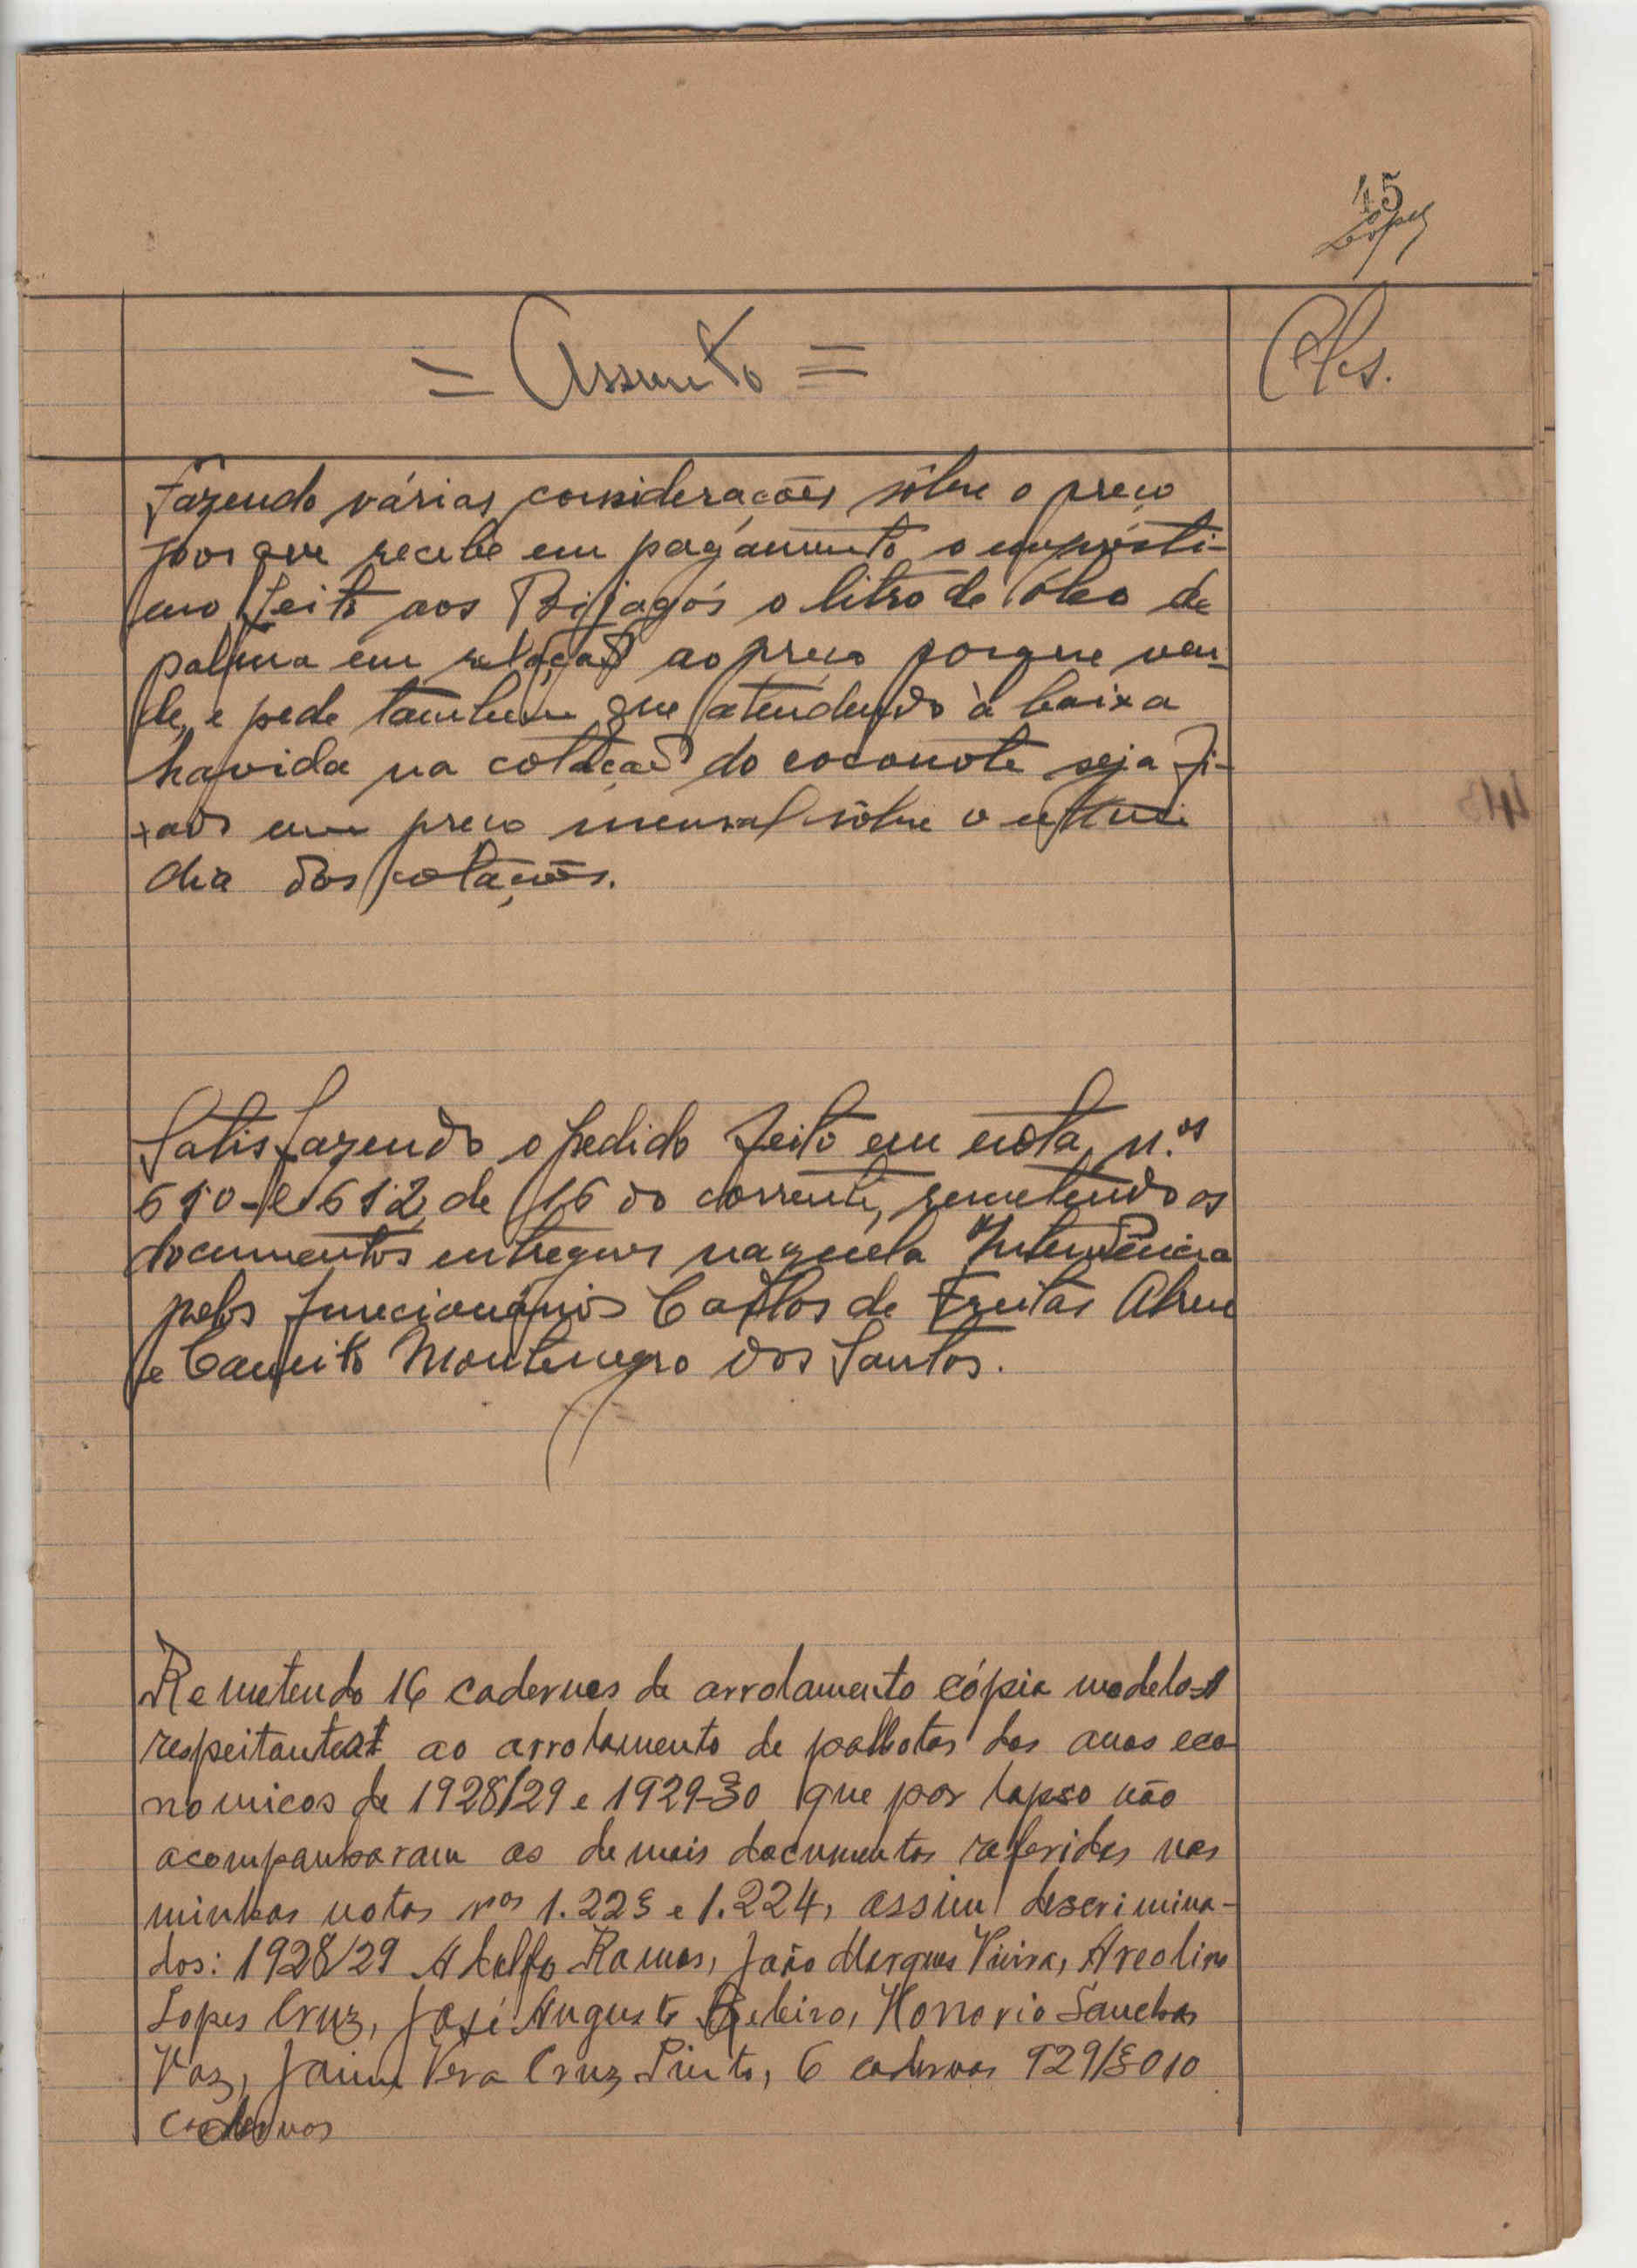 45
Lopes
= Assunto =
Obs.
Fazendo várias considerações sôbre o preço
porque recebe em pagamento o emprésti-
mo feito aos Bijagós o litro de óleo de
palma em relação ao preço porque ven-
de, e pede tambem que atendendo à baixa
havida na cotação do coconote seja fi-
xado um preço mensal sôbre o ultimo
dia das cotações.
Satisfazendo o pedido feito em nota n.os
610-e 612 de 16 do corrente, remetendo os
documentos entregues naquela Intendência
pelos funcionários Carlos de Freitas Abreu
e Camito Montenegro dos Santos.
Remetendo 16 cadernos de arrolamento cópia modelo-1
respeitantes ao arrolamento de palhotas dos anos eco-
nomicos de 1928/29 e 1929-30 que por lapso não
acompanharam os demais documentos referidos nas
minhas notas nos 1.223 e 1.224, assim descrimina-
dos: 1928/29 Adolfo Ramos, João Marques Vieira, Areolino
Lopes Cruz, José Augusto Ribeiro, Honorio Sanches
Vaz, Jaime Vera Cruz Pinto, 6 cadernos 929/30 10
cadernos